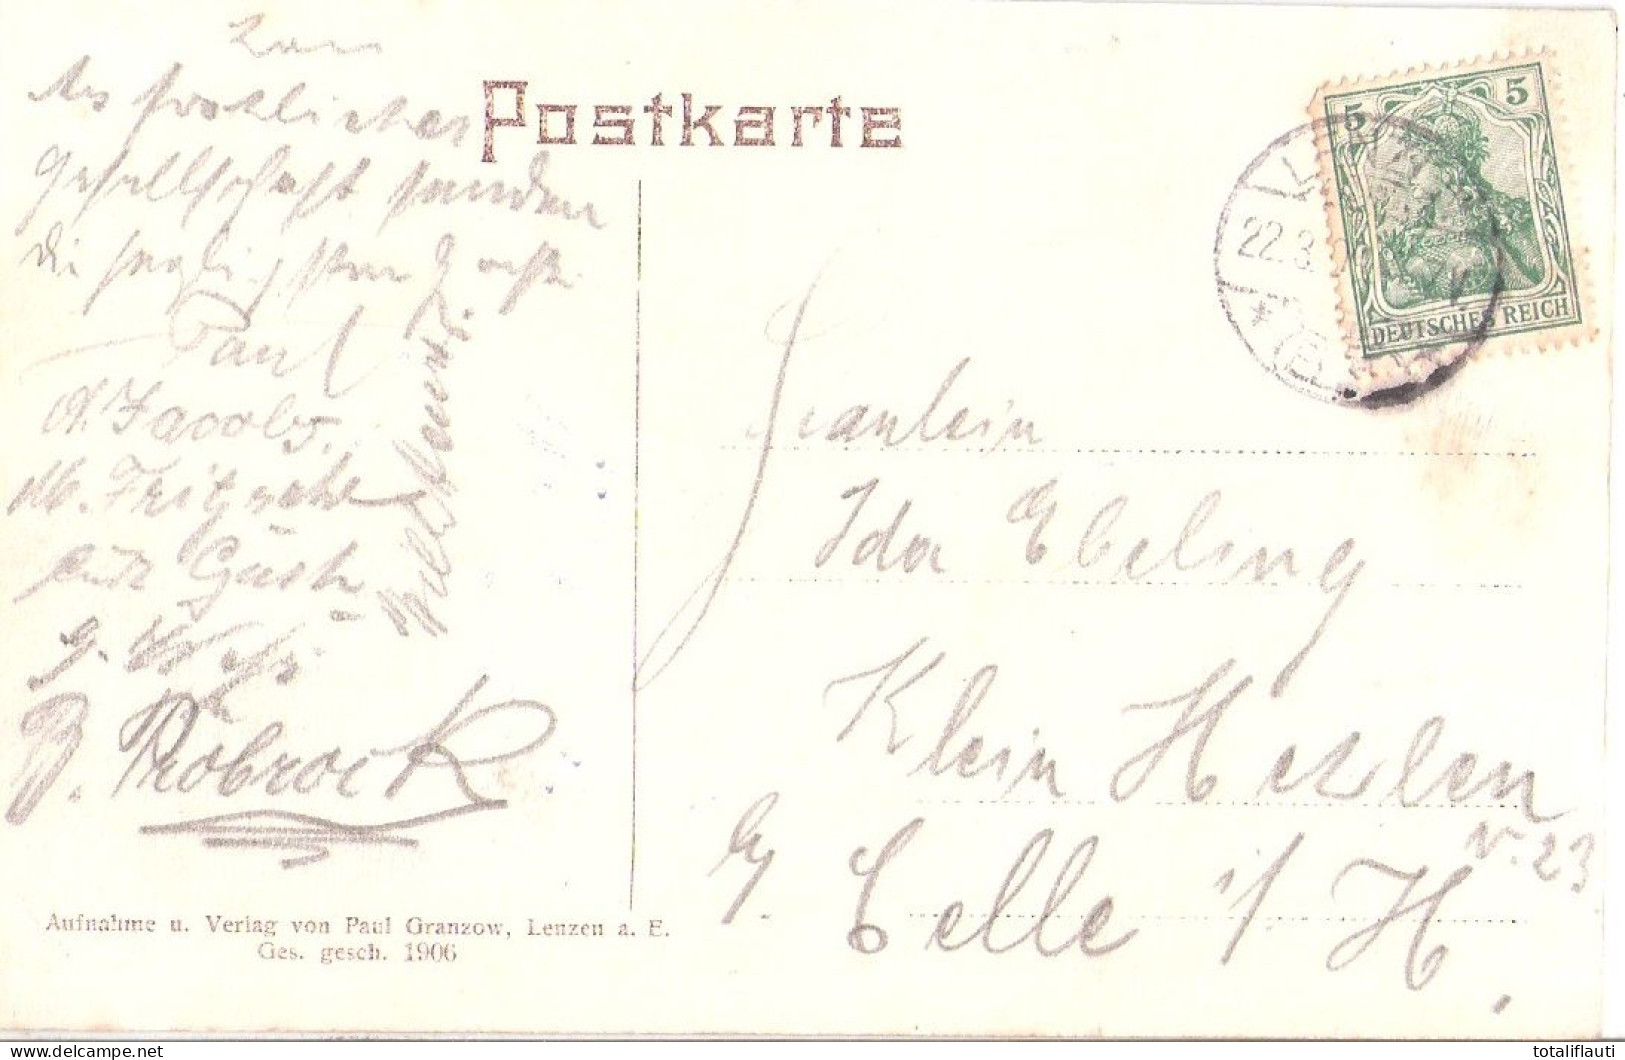 Postkarte
Aus fröhlicher
Gesellschaft senden
die herzlichsten Grüße
Paul
A. Jacobs.
M. Fritzsche
G.
B. Probrock
Aufnahme u. Verlag von Paul Granzow, Lenzen a. E.
Ges. gesch. 1906
5 5
DEUTSCHES REICH
22.3.
Fräulein
Ida Ebeling
Klein Hehlen
N. 23
b/ Celle i/H.
totaliflauti
www.delcampe.net